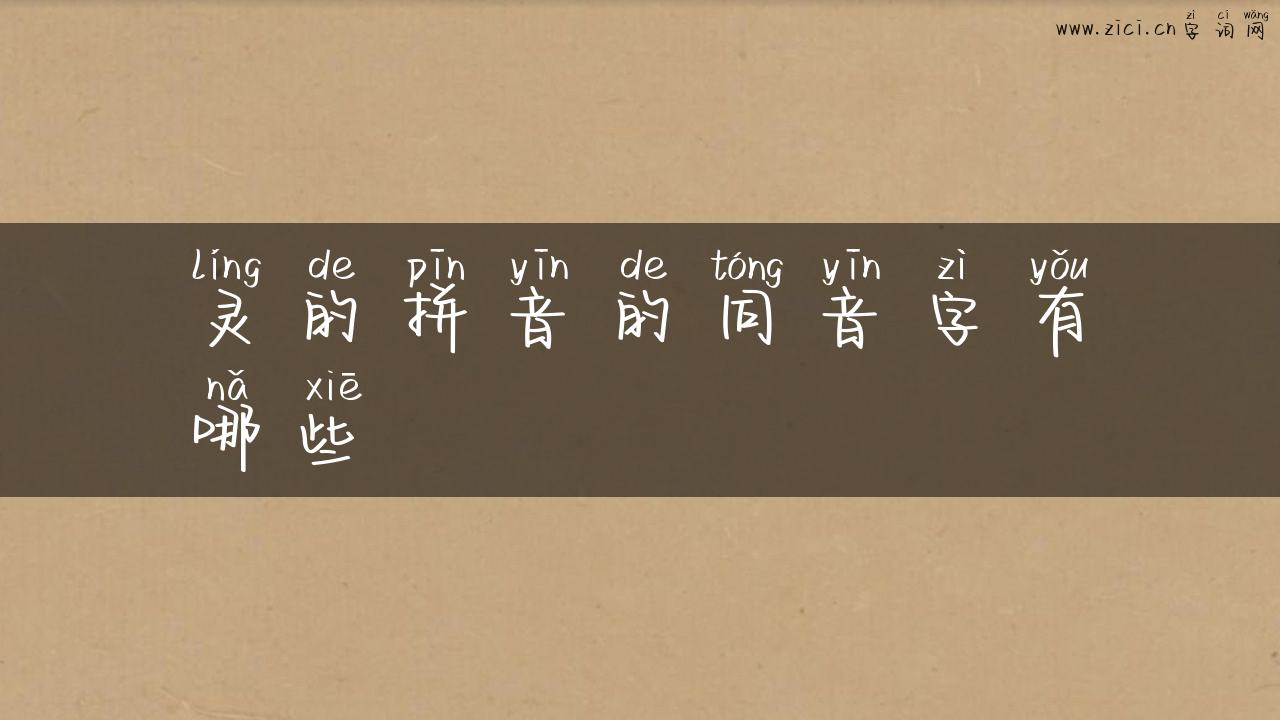 zì cí wǎng
www.zici.cn 字 词 网
líng de pīn yīn de tóng yīn zì yǒu
灵 的 拼 音 的 同 音 字 有
nǎ xiē
哪 些